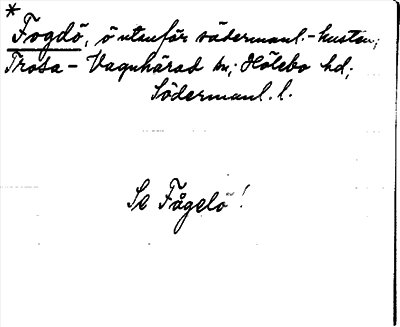 *
Fogdö, ö utanför södermanl.-kusten;
Trosa-Vagnhärad sn; Hölebo hd;
Södermanl. l.
Se Fågelö!